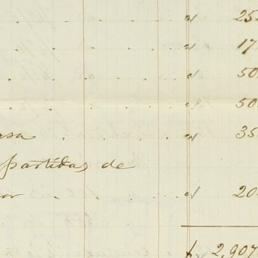 " 25
" 17
" 50
" 50
" 35
partidas de
" 20
2,907